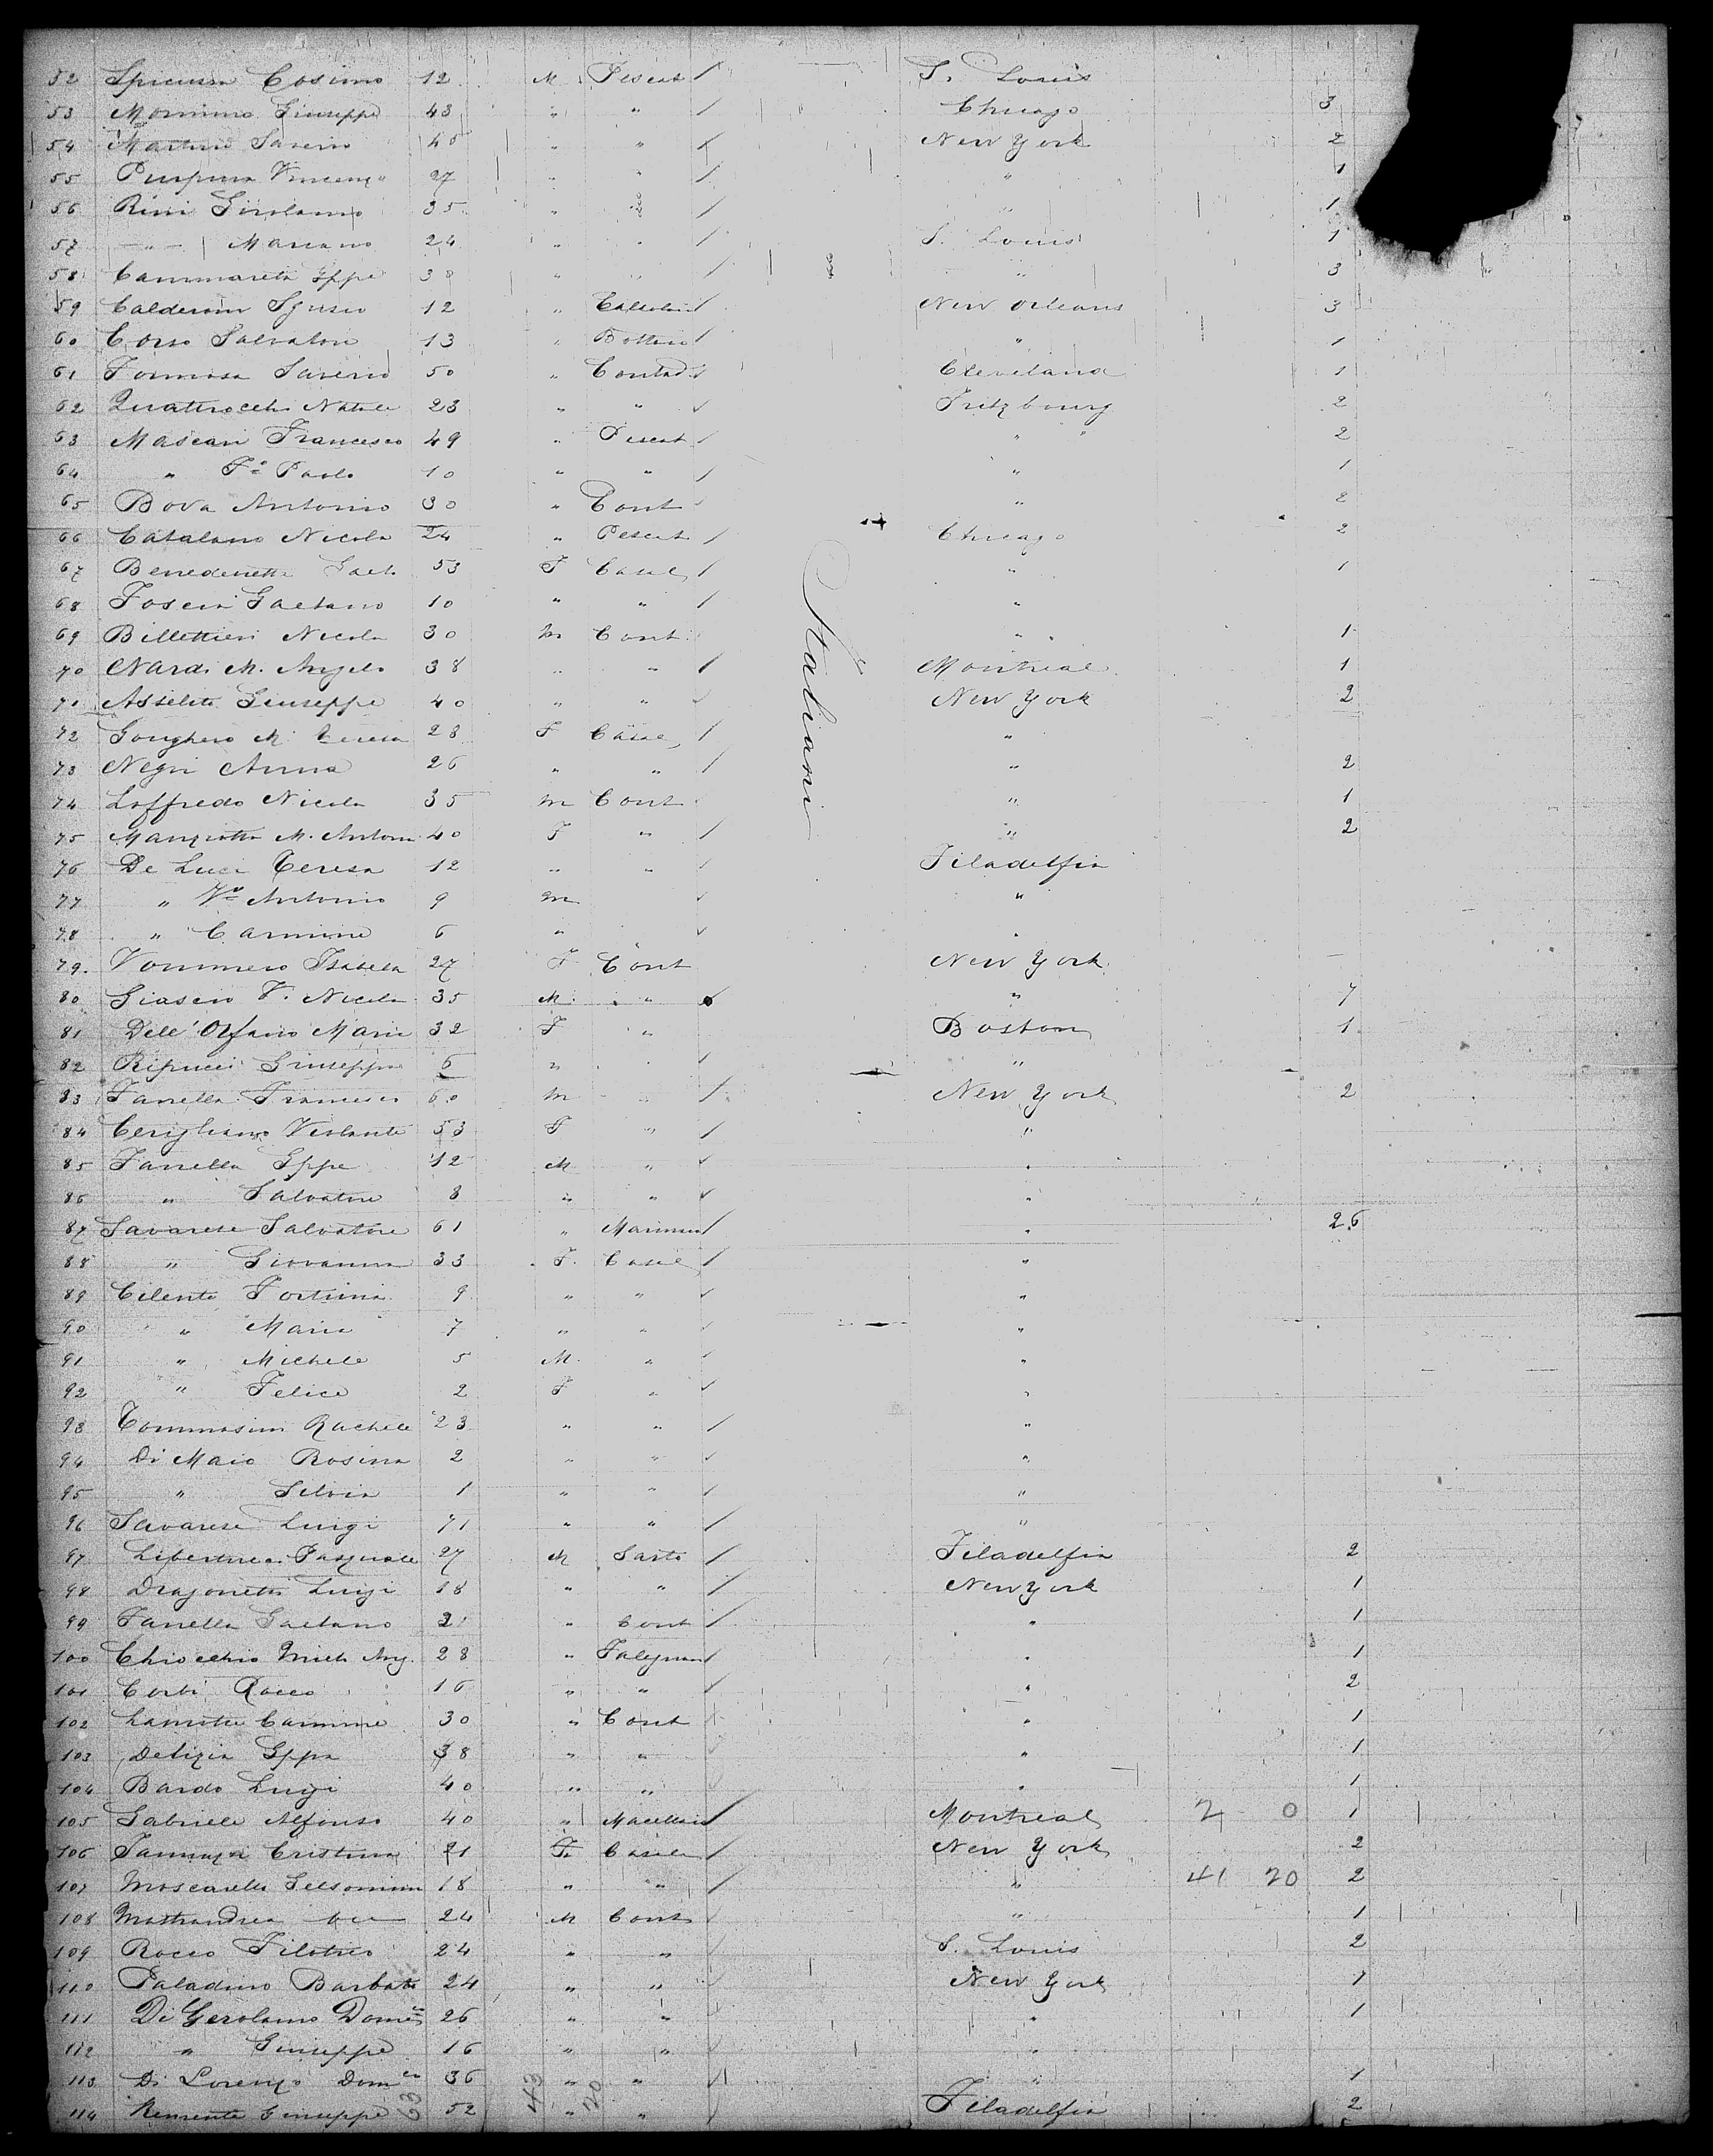 52 Cosimo 12 M Pescat / S. Louis
53 Mornino Giuseppe 43 " " / Chicago 3
54 Saverio 45 " " / New York 2
55 Purpura Vincenzo 27 " " / " 1
56 Rini Girolamo 35 " " / " 1
57 " Mariano 24 " " / S. Louis 1
58 Cammareta Gppe 38 " " / " 3
59 Calderoni 12 " / New Orleans 3
60 Corso Salvatore 13 " / " 1
61 Formosa Saverio 50 " Contad. / Cleveland 1
62 Quattrocchi Natale 23 " " / Pritzbourg 2
63 Mascari Francesco 49 " Pescat / " " 2
64 " Fo Paolo 10 " " / " 1
65 Bova Antonio 30 " Cont / " 2
66 Catalano Nicola 24 " Pescat / Chicago 2
67 Benedenetta Gaet. 53 F Casal / " 1
68 Gaetano 10 " " / "
69 Billettieri Nicola 30 M Cont. " " 1
70 Nardi M. Angelo 38 " " / Montreal 1
71 Asselita Giuseppe 40 " " / New York 2
72 M. Teresa 28 F Casal / "
73 Negri Anna 26 " " / " 2
74 Loffredo Nicola 35 M Cont " 1
75 Manziotta M. Antonia 40 F " / " 2
76 De Luca Teresa 12 " " / Filadelfia
77 " Vo Antonio 9 M / "
78 " Carmine 6 " / "
79. Vommero Isabella 27 F Cont New York
80 V. Nicola 35 M " / " 7
81 Dell' Orfano Maria 32 F " Boston 1
82 Ripucci Giuseppa 6 " " / "
83 Fanella Francesco 60 M " / New York 2
84 Cerigliano Violante 53 F " / "
85 Fanella Gppe 12 M " / "
86 " Salvatore 8 " " / "
87 Savarese Salvatore 61 " Marinaro / " 26
88 " Giovanna 33 F. Casal / "
89 Cilento Fortuna 9 " " / "
90 " Maria 7 " " / "
91 " Michele 5 M. " / "
92 " Felice 2 F " / "
93 Tommasini Rachele 23 " " / "
94 Di Maio Rosina 2 " " / "
95 " Silvia 1 " " / "
96 Savarese Luigi 71 " " / "
97 Pasquale 27 M Sarto / Filadelfia 2
98 Dragonetti Luigi 18 " " / New York 1
99 Fanella Gaetano 21 " Cont / " 1
100 Chiocchio Mich Ang. 28 " Falegname / " 1
101 Corbi Rocco 16 " " / " 2
102 Carmine 30 " Cont / " 1
103 Delizia Gppa 38 " " / " 1
104 Bardo Luigi 40 " " / " 1
105 Gabriele Alfonso 40 " Macellaio / Montreal 2 0 1
106 Iannuzzi Cristina 21 F. Casal / New York 2
107 Moscarella Gelsomina 18 " " / " 41 20 2
108 Mastrandrea 24 M Cont / " 1
109 Rocco Filoteo 24 " " / S. Louis 2
110 Paladino Barbato 24 " " / New York 1
111 Di Gerolamo Domco 26 " " / " 1
112 " Giuseppe 16 " " "
113 Di Lorenzo Domco 36 " " / " 1
114 Giuseppe 52 " " / Filadelfia 2
Italiani
63 43 20